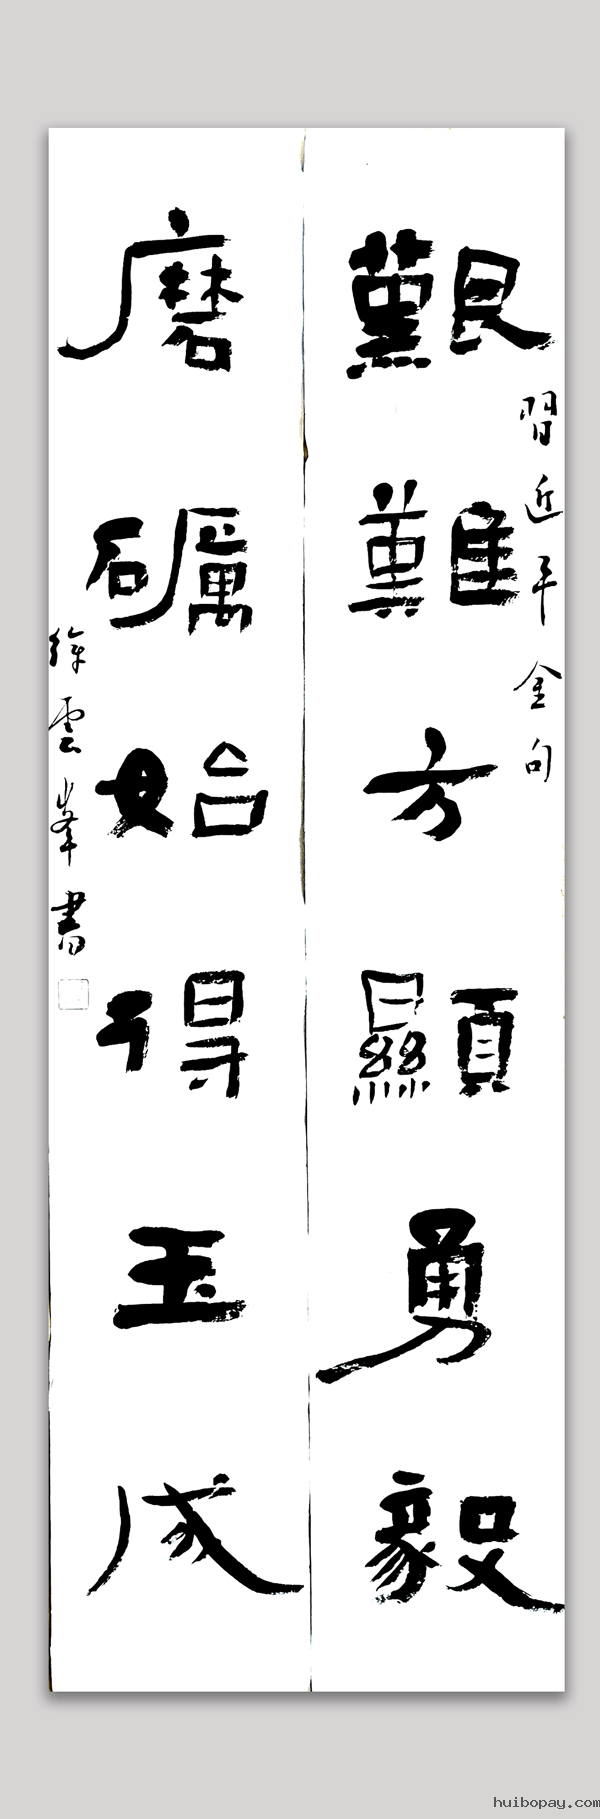 艱難方顯勇毅
習近平金句
磨礪始得玉成
徐雲峯書
huibopay.com